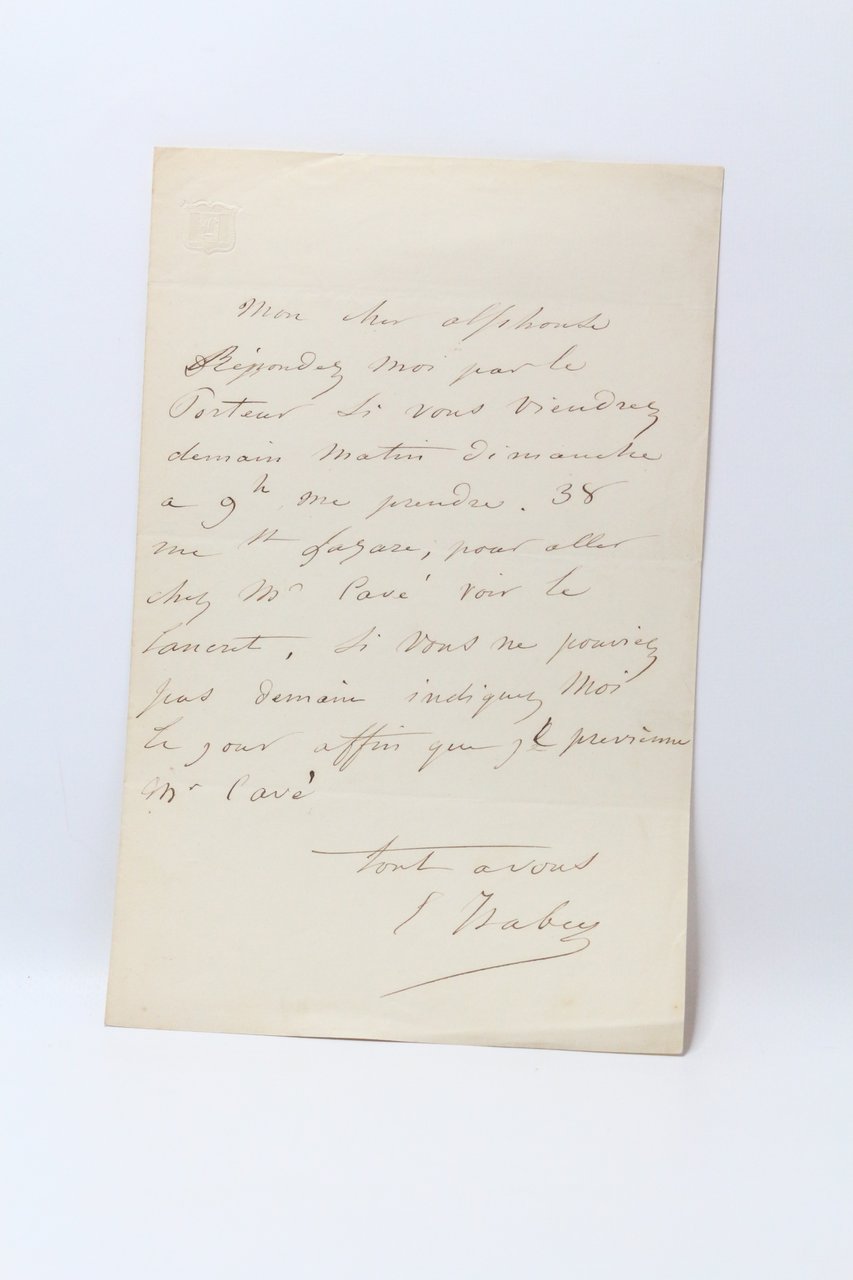 Mon cher alphonse
Répondez moi par le
Porteur si vous viendrez
demain matin dimanche
a 9h me prendre. 38
rue st Lazare, pour aller
chez Mr Cavé voir le
lancret, si vous ne pouviez
pas demain indiquez moi
le jour affin que je previenne
Mr Cavé
tout avous
E Isabey